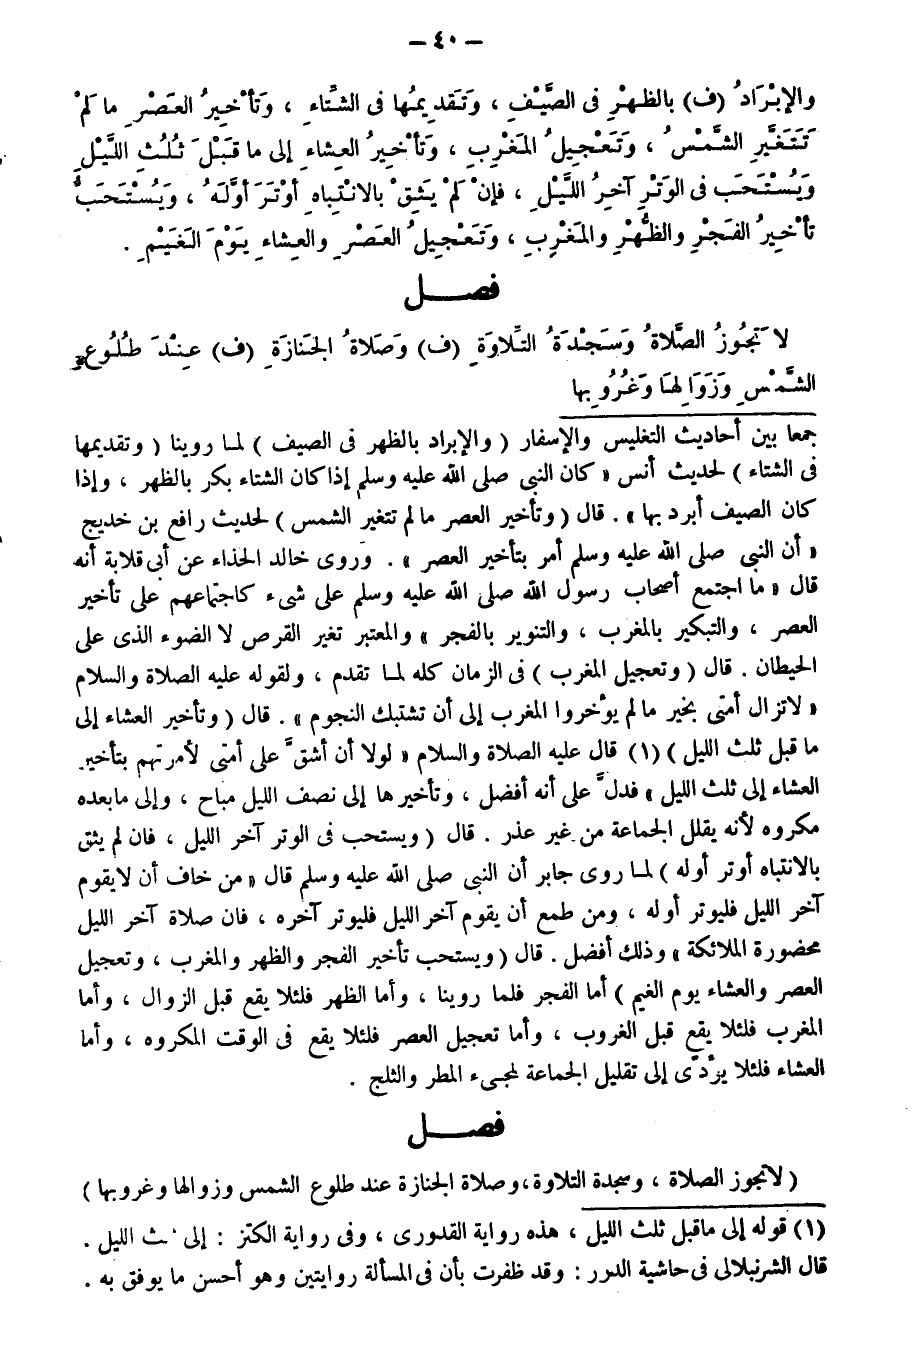 — ٤٠ —
والإبْرَادُ (ف) بالظهْرِ فى الصَّيْفِ ، وَتَقديمُها فى الشتَّاءِ ، وَتأْخيرُ العَصْرِ ما لَمْ
تَتَغَيَّرِ الشَّمْسُ ، وَتَعْجيلُ المَغْربِ ، وَتأْخيرُ العِشاءِ إلى ما قَبْلَ ثُلُثِ اللَّيْلِ
وَيُسْتَحَب فى الوَتْرِ آخِرُ اللَّيْلِ ، فإنْ لَمْ يَثِقْ بالانْتِباهِ أوْتَرَ أوَّلَهُ ، وَيُسْتَحَبُّ
تأْخيرُ الفَجْرِ والظُّهْرِ والمَغْرِبِ ، وَتَعْجيلُ العَصْرِ والعِشاءِ يَوْمَ الغَيْمِ .
فصـــل
لا تَجُوزُ الصَّلاةُ وَسَجْدَةُ التِّلاوَةِ (ف) وَصَلاةُ الجَنازَةِ (ف) عِنْدَ طُلُوعِ
الشَّمْسِ وَزَوَالِهَا وَغُرُوبِها
جمعا بين أحاديث التغليس والإسفار ( والإبراد بالظهر فى الصيف ) لمـا روينا ( وتقديمها
فى الشتاء ) لحديث أنس « كان النبى صلى الله عليه وسلم إذا كان الشتاء بكر بالظهر ، وإذا
كان الصيف أبرد بها » . قال ( وتأخير العصر ما لم تتغير الشمس ) لحديث رافع بن خديج
« أن النبى صلى الله عليه وسلم أمر بتأخير العصر » . وروى خالد الحذاء عن أبى قلابة أنه
قال « ما اجتمع أصحاب رسول الله صلى الله عليه وسلم على شىء كاجتماعهم على تأخير
العصر ، والتبكير بالمغرب ، والتنوير بالفجر » والمعتبر تغير القرص لا الضوء الذى على
الحيطان . قال ( وتعجيل المغرب ) فى الزمان كله لمـا تقدم ، ولقوله عليه الصلاة والسلام
« لاتزال أمتى بخير ما لم يؤخروا المغرب إلى أن تشتبك النجوم » . قال ( وتأخير العشاء إلى
ما قبل ثلث الليل ) (١) قال عليه الصلاة والسلام « لولا أن أشقَّ على أمتى لأمرتهم بتأخير
العشاء إلى ثلث الليل » فدلَّ على أنه أفضل ، وتأخيرها إلى نصف الليل مباح ، وإلى مابعده
مكروه لأنه يقلل الجماعة من غير عذر . قال ( ويستحب فى الوتر آخر الليل ، فان لم يثق
بالانتباه أوتر أوله ) لمـا روى جابر أن النبى صلى الله عليه وسلم قال « من خاف أن لايقوم
آخر الليل فليوتر أوله ، ومن طمع أن يقوم آخر الليل فليوتر آخره ، فان صلاة آخر الليل
محضورة الملائكة » وذلك أفضل . قال ( ويستحب تأخير الفجر والظهر والمغرب ، وتعجيل
العصر والعشاء يوم الغيم ) أما الفجر فلما روينا ، وأما الظهر فلئلا يقع قبل الزوال ، وأما
المغرب فلئلا يقع قبل الغروب ، وأما تعجيل العصر فلئلا يقع فى الوقت المكروه ، وأما
العشاء فلئلا يؤدّى إلى تقليل الجماعة لمجىء المطر والثلج .
فصـــل
( لاتجوز الصلاة ، وسجدة التلاوة ، وصلاة الجنازة عند طلوع الشمس وزوالها وغروبها )
(١) قوله إلى ماقبل ثلث الليل ، هذه رواية القدورى ، وفى رواية الكنز : إلى ث الليل .
قال الشرنبلالى فى حاشية الدرر : وقد ظفرت بأن فى المسألة روايتين وهو أحسن ما يوفق به .